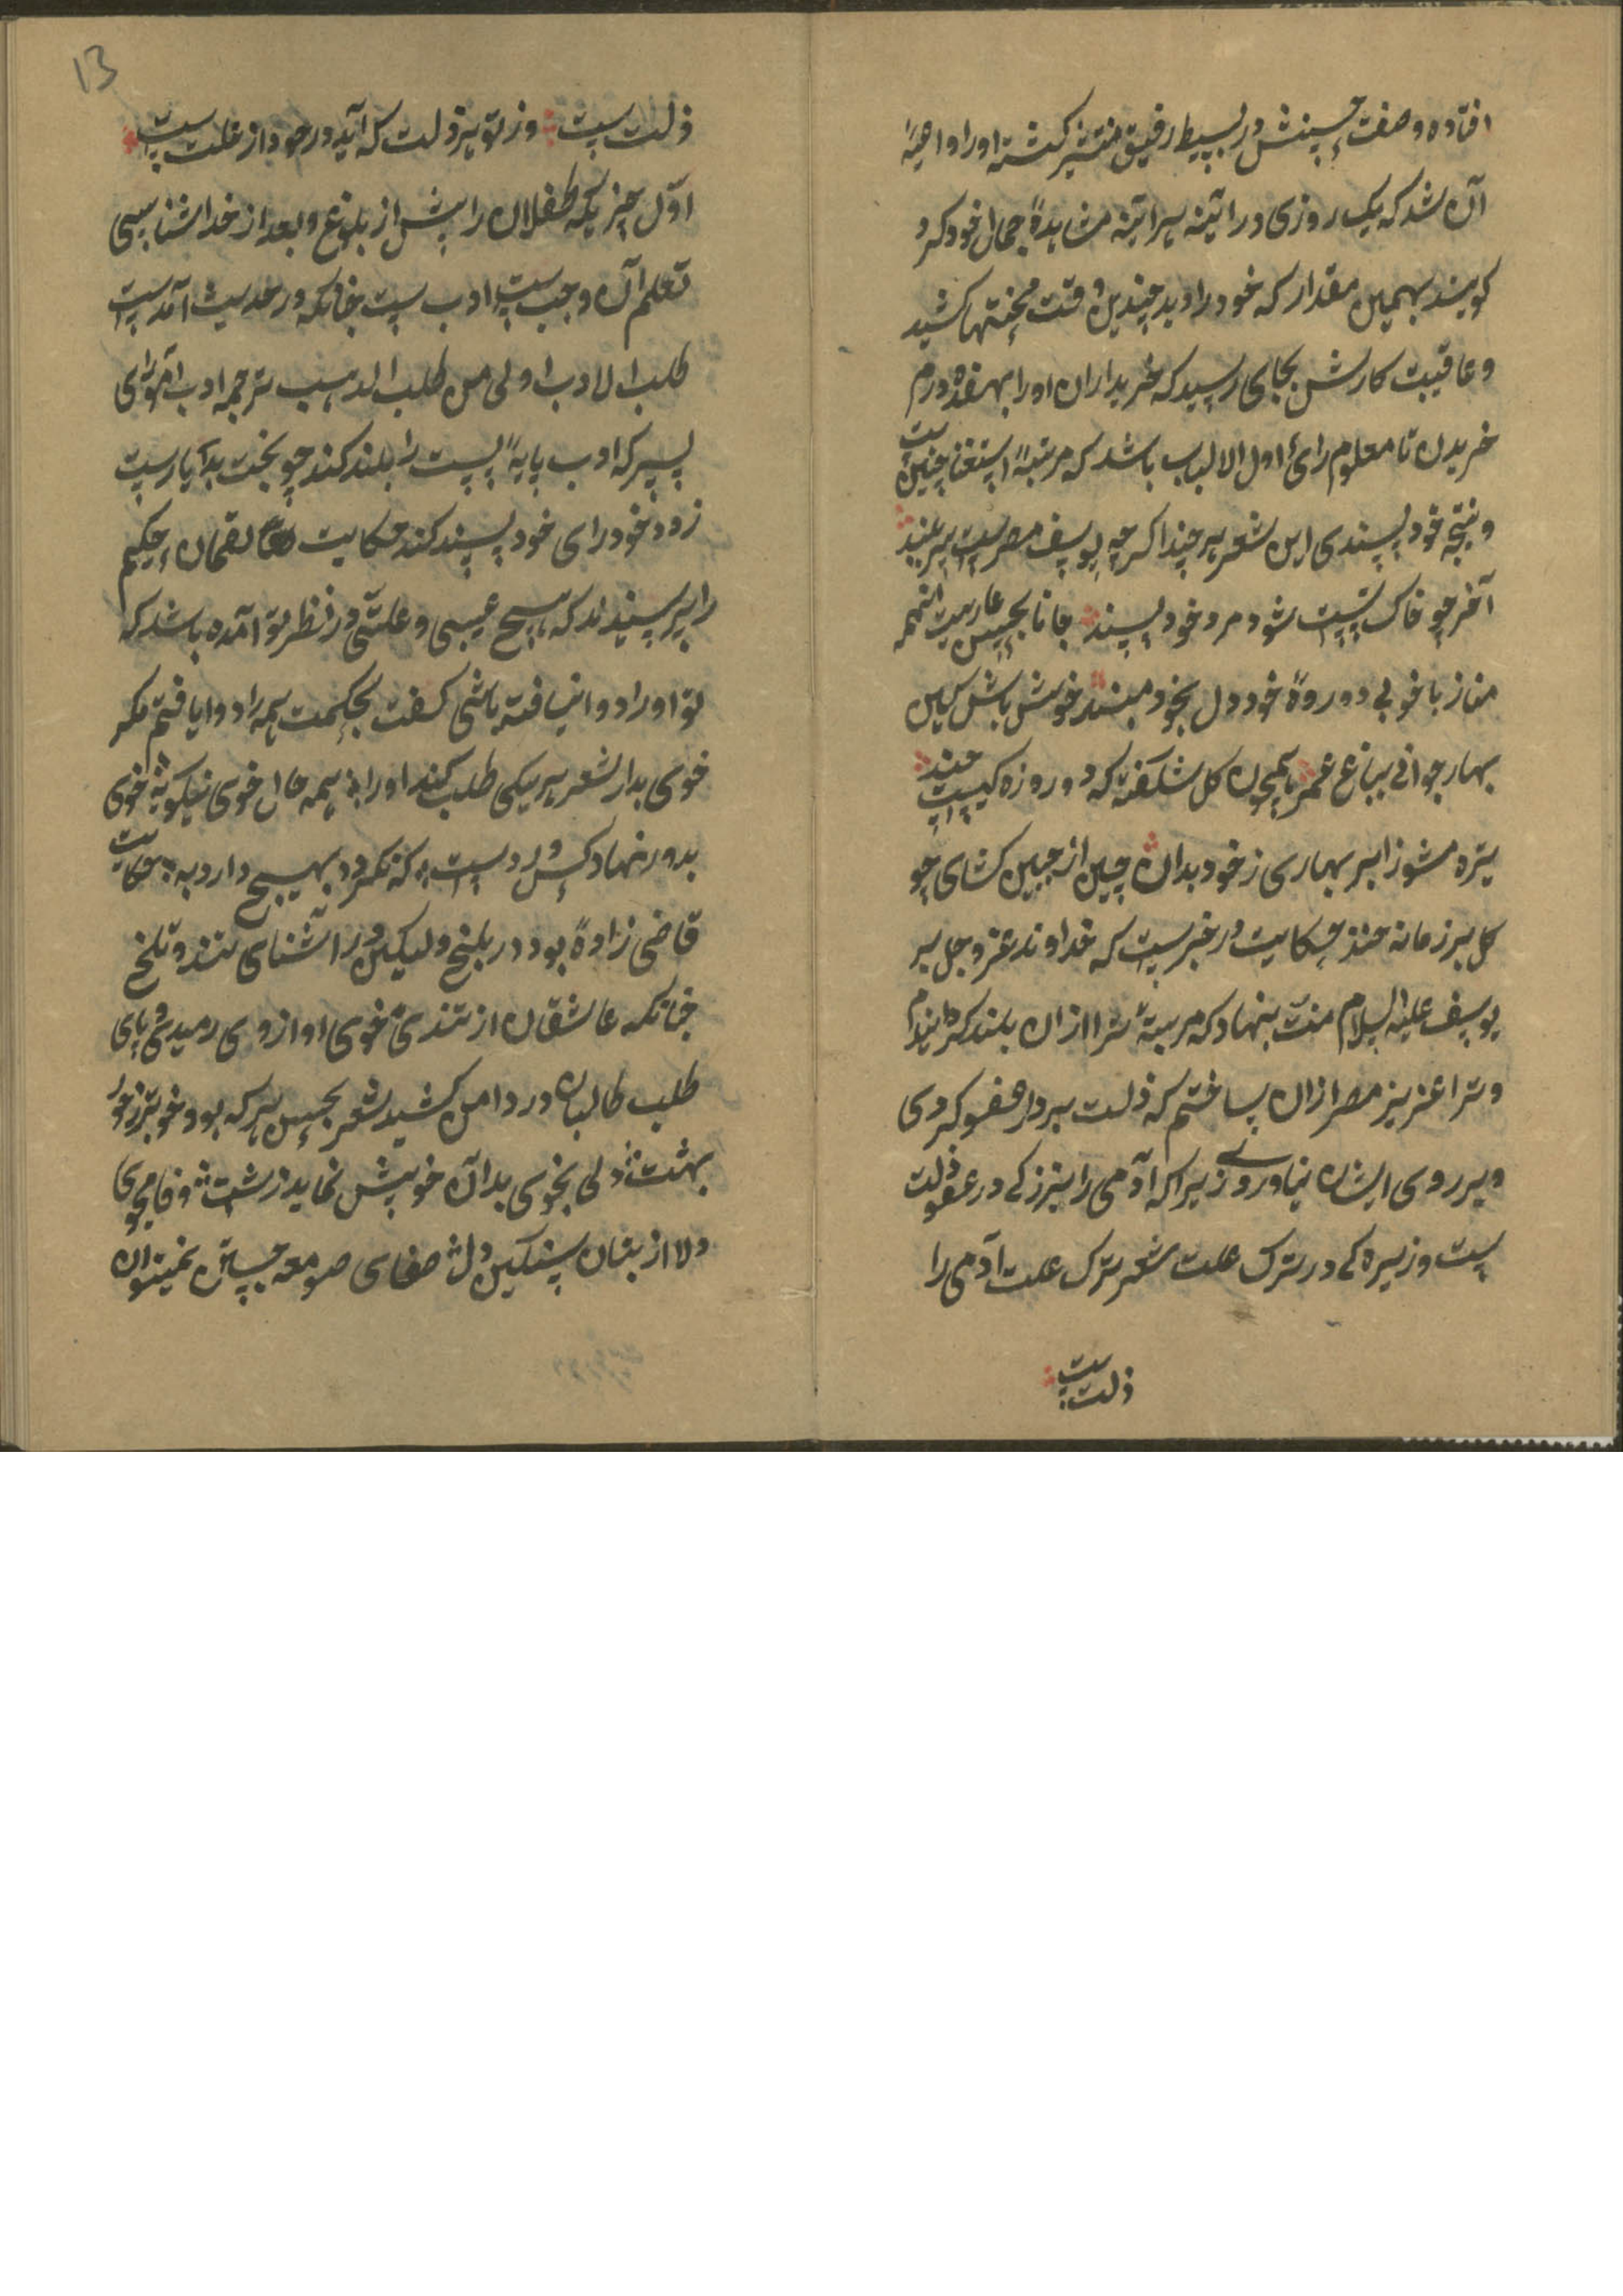 افتاده وصفت حسنش در بسیط رفیق منتشر کشته اورا واهیهٔ
آن شد که یک روزی در ائینه سرائینه مشاهدهٔ جمال خود کرد
کویند بهمین مقدار که خود را دید چندین وقت محنتها کشید
وعاقبت کارش بجای رسید که خریداران اورا بهفده درم
خریدن تا معلوم رائ اول الالباب باشد که مرتبهٔ استغنا چنین ست
ونتیجه خود پسندی این شعر هر چند اکر چه یوسف مصریست سر بلند
آخر چو خاک پست شود مرد خود پسند جانا بحسن عاریت اینهمه
مناز با خوبی دو روهٔ خود دل بخود مبند خوش باش کین
بهار جوانی بباغ عمر همچون کل شکفته که دو روزه کیست چند
تیره مشو ز ابر بهاری ز خود بدان چین از جبین کشای چو
کل بر زمانه خند حکایت در خبرست که خداوند عز وجل بر
یوسف علیه السلام منت بنهاد که مرتبهٔ ترا ازان بلند کردانیدم
وترا عزیز مصر ازان ساختم که ذلت برادر عفو کردی
وبر روی ایشان نیاوردی زیراکه آدمی را بزرکی در عفو ذلت
ست وزیرهکی در ترک علت شعر ترک علت آدمی را
ذلت ست
13
ذلت ست وز تو یر ذلت که آید در وجود از علت ست
اوّل چیزیکه طفلان را پیش از بلوغ وبعد از خدا شناسی
تعلم آن وجب ست ادب ست چنانکه در حدیث آمدست
طلب الادب اولی من طلب الذهب ترجمه ادب آموز ای
پسر که ادب پایهٔ پست را بلند کند چو بخت بد یارست
زود خود رای خود پسند کند حکایت لقمان حکیم
را پرسیدند که هیچ عیبی وعلتی در نظر تو آمده باشد که
تو اورا دوا نیافته باشی کفت بحکمت همه را دوا یافتم مکر
خوی بد را شعر هر یکی طلب کند اورا به همه حال خوی نیکو به خوی
بد در نهاد کس درد ست که نکردد بهیچ دارو به حکایت
قاضی زادهٔ بود در بلخ ولیکن ورا آشنای تند و تلخ
چنانکه عاشقان از تندیٔ خوی او از وی رمیدی وپای
طلب طالبان در دامن کشید شعر بحسن هر که بود خوبتر ز حور
بهشت ولی بخوی بد آن خویش نماید زشت وفا مجوی
دلا از بتان سنکین دل صفای صومعه جستن نمیتوان